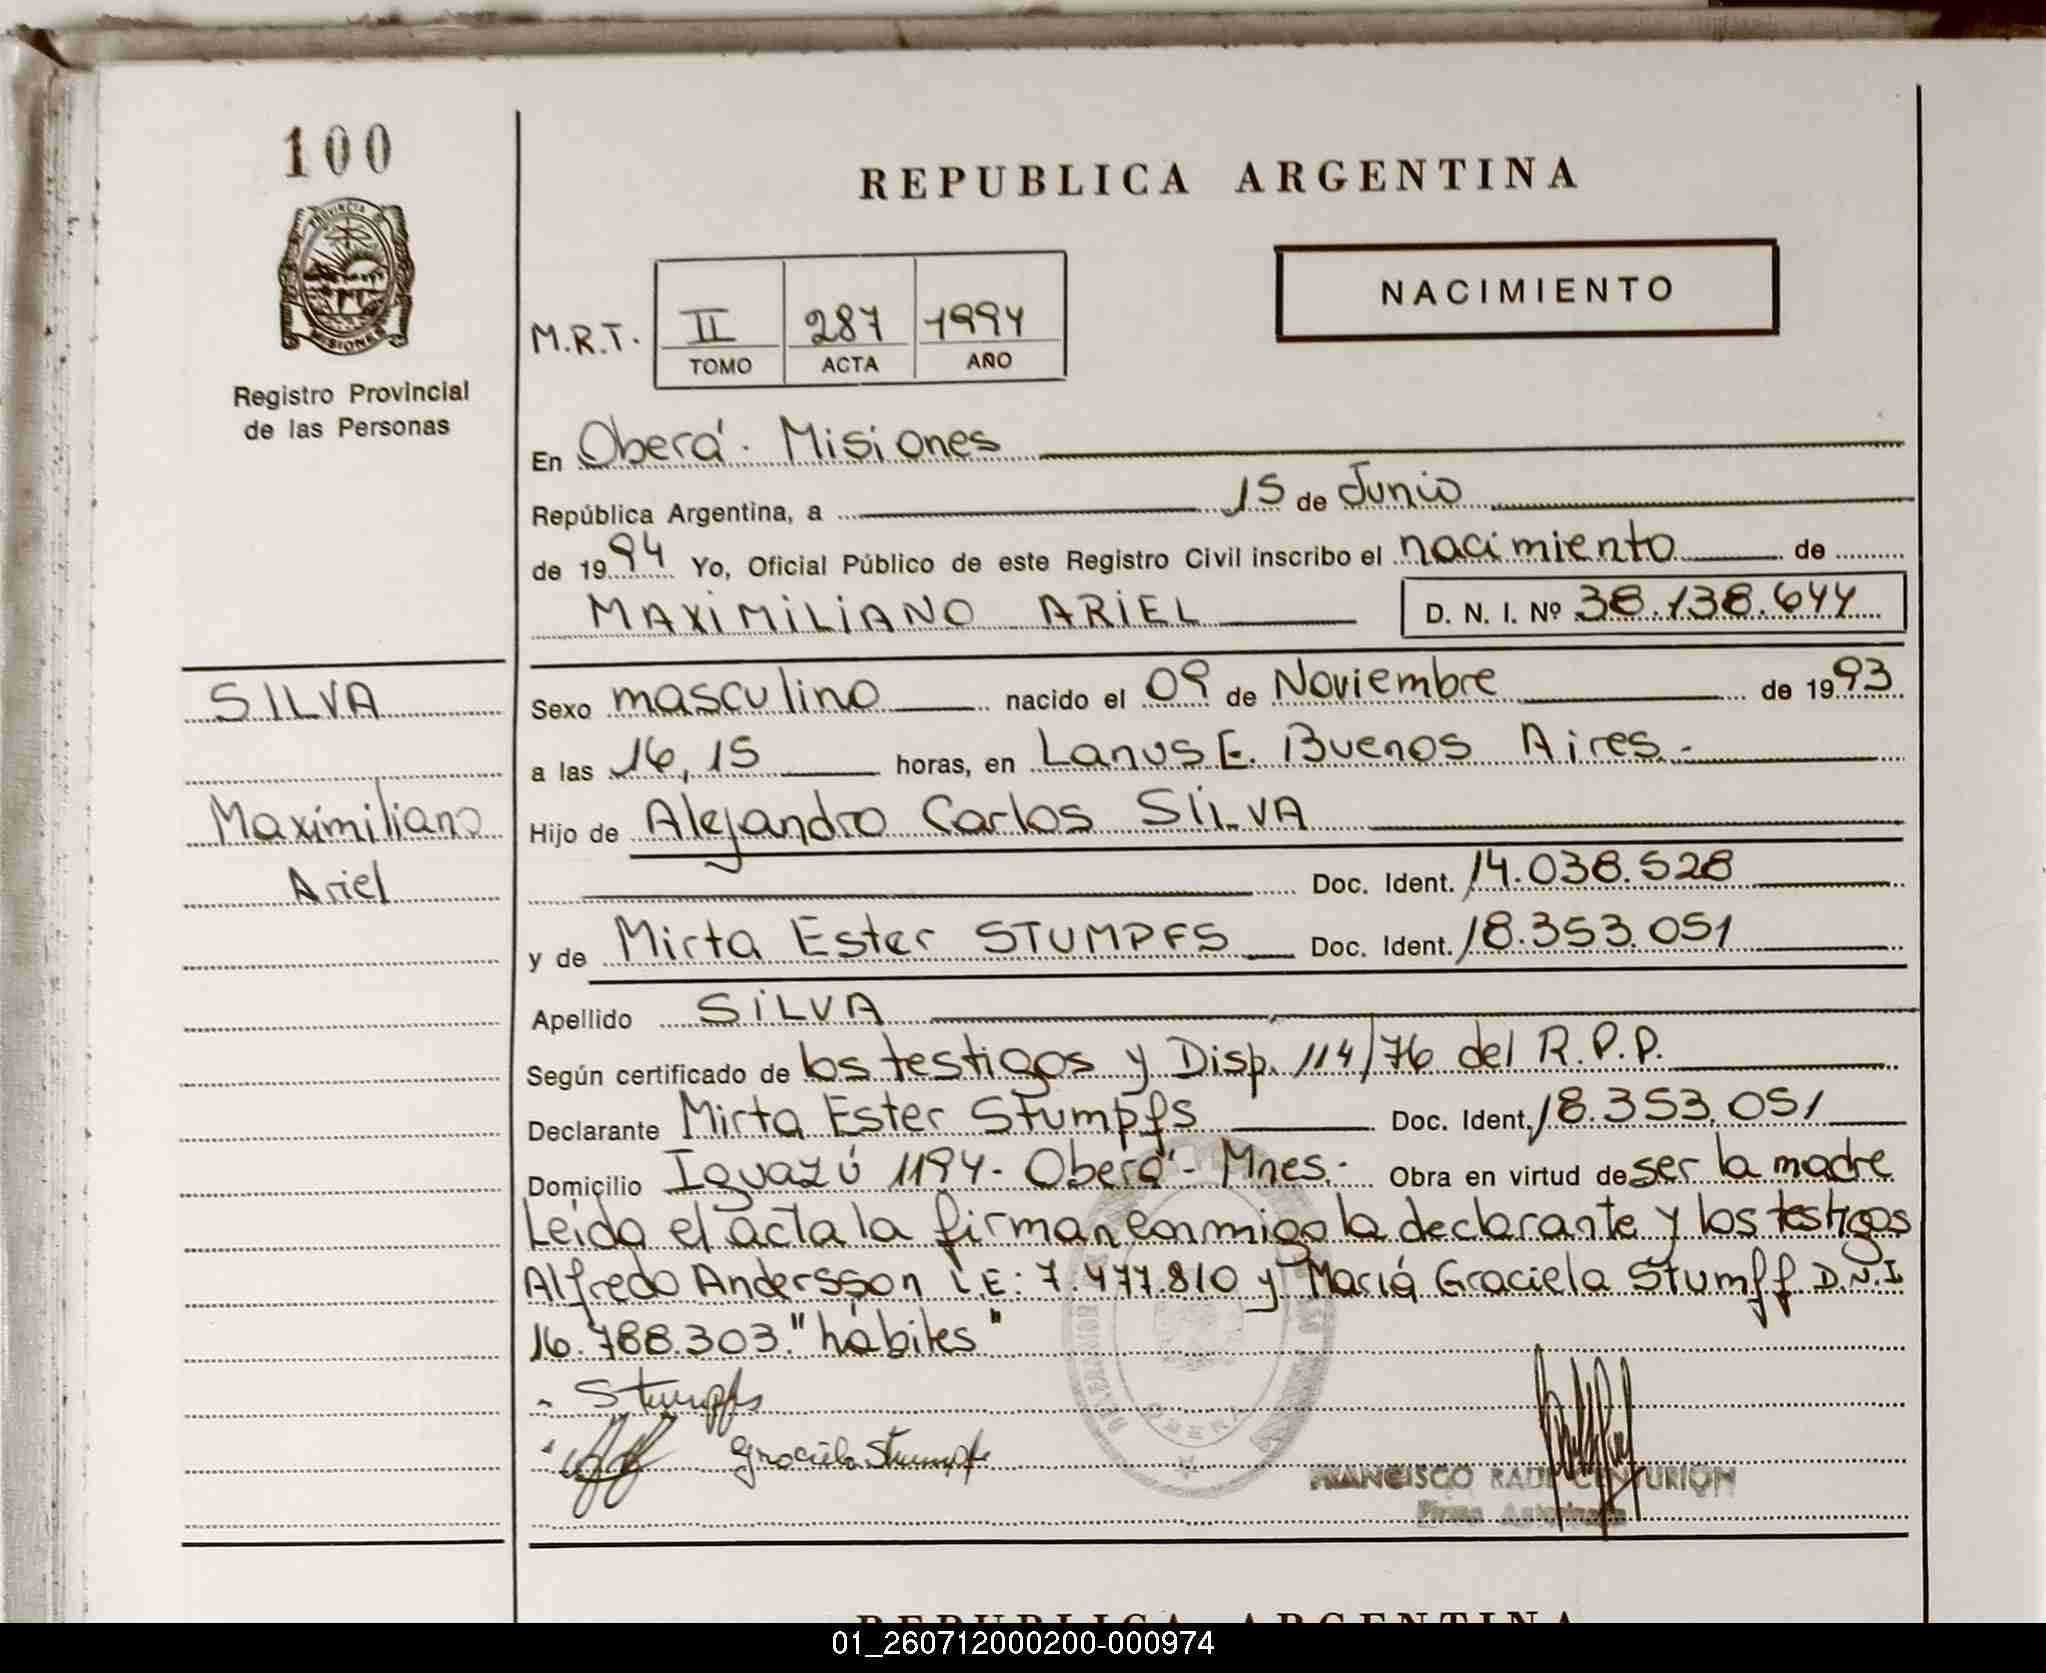 100
PROVINCIA DE
MISIONES
Registro Provincial
de las Personas
REPUBLICA ARGENTINA
NACIMIENTO
M.R.T. II 287 1994
TOMO ACTA AÑO
En Oberá. Misiones
República Argentina, a 15 de Junio
de 1994 Yo, Oficial Público de este Registro Civil inscribo el nacimiento de
MAXIMILIANO ARIEL D. N. I. Nº 38.138.644
SILVA
Maximiliano
Ariel
Sexo masculino nacido el 09 de Noviembre de 1993
a las 16,15 horas, en Lanus E. Buenos Aires.-
Hijo de Alejandro Carlos SILVA
Doc. Ident. 14.038.528
y de Mirta Ester STUMPFS Doc. Ident. 18.353.051
Apellido SILVA
Según certificado de los testigos y Disp. 114/76 del R.P.P.
Declarante Mirta Ester Stumpfs Doc. Ident. 18.353.051
Domicilio Iguazú 1194- Oberá- Mnes.- Obra en virtud de ser la madre
Leida el acta la firman conmigo la declarante y los testigos
Alfredo Andersson L.E: 7.477.810 y María Graciela Stumff D.N.I
16.788.303."hábiles"
Stumpfs
Graciela Stumpfs
OBERA
FRANCISCO RAUL CENTURION
Firma Autorizada
REPUBLICA ARGENTINA
01_260712000200-000974